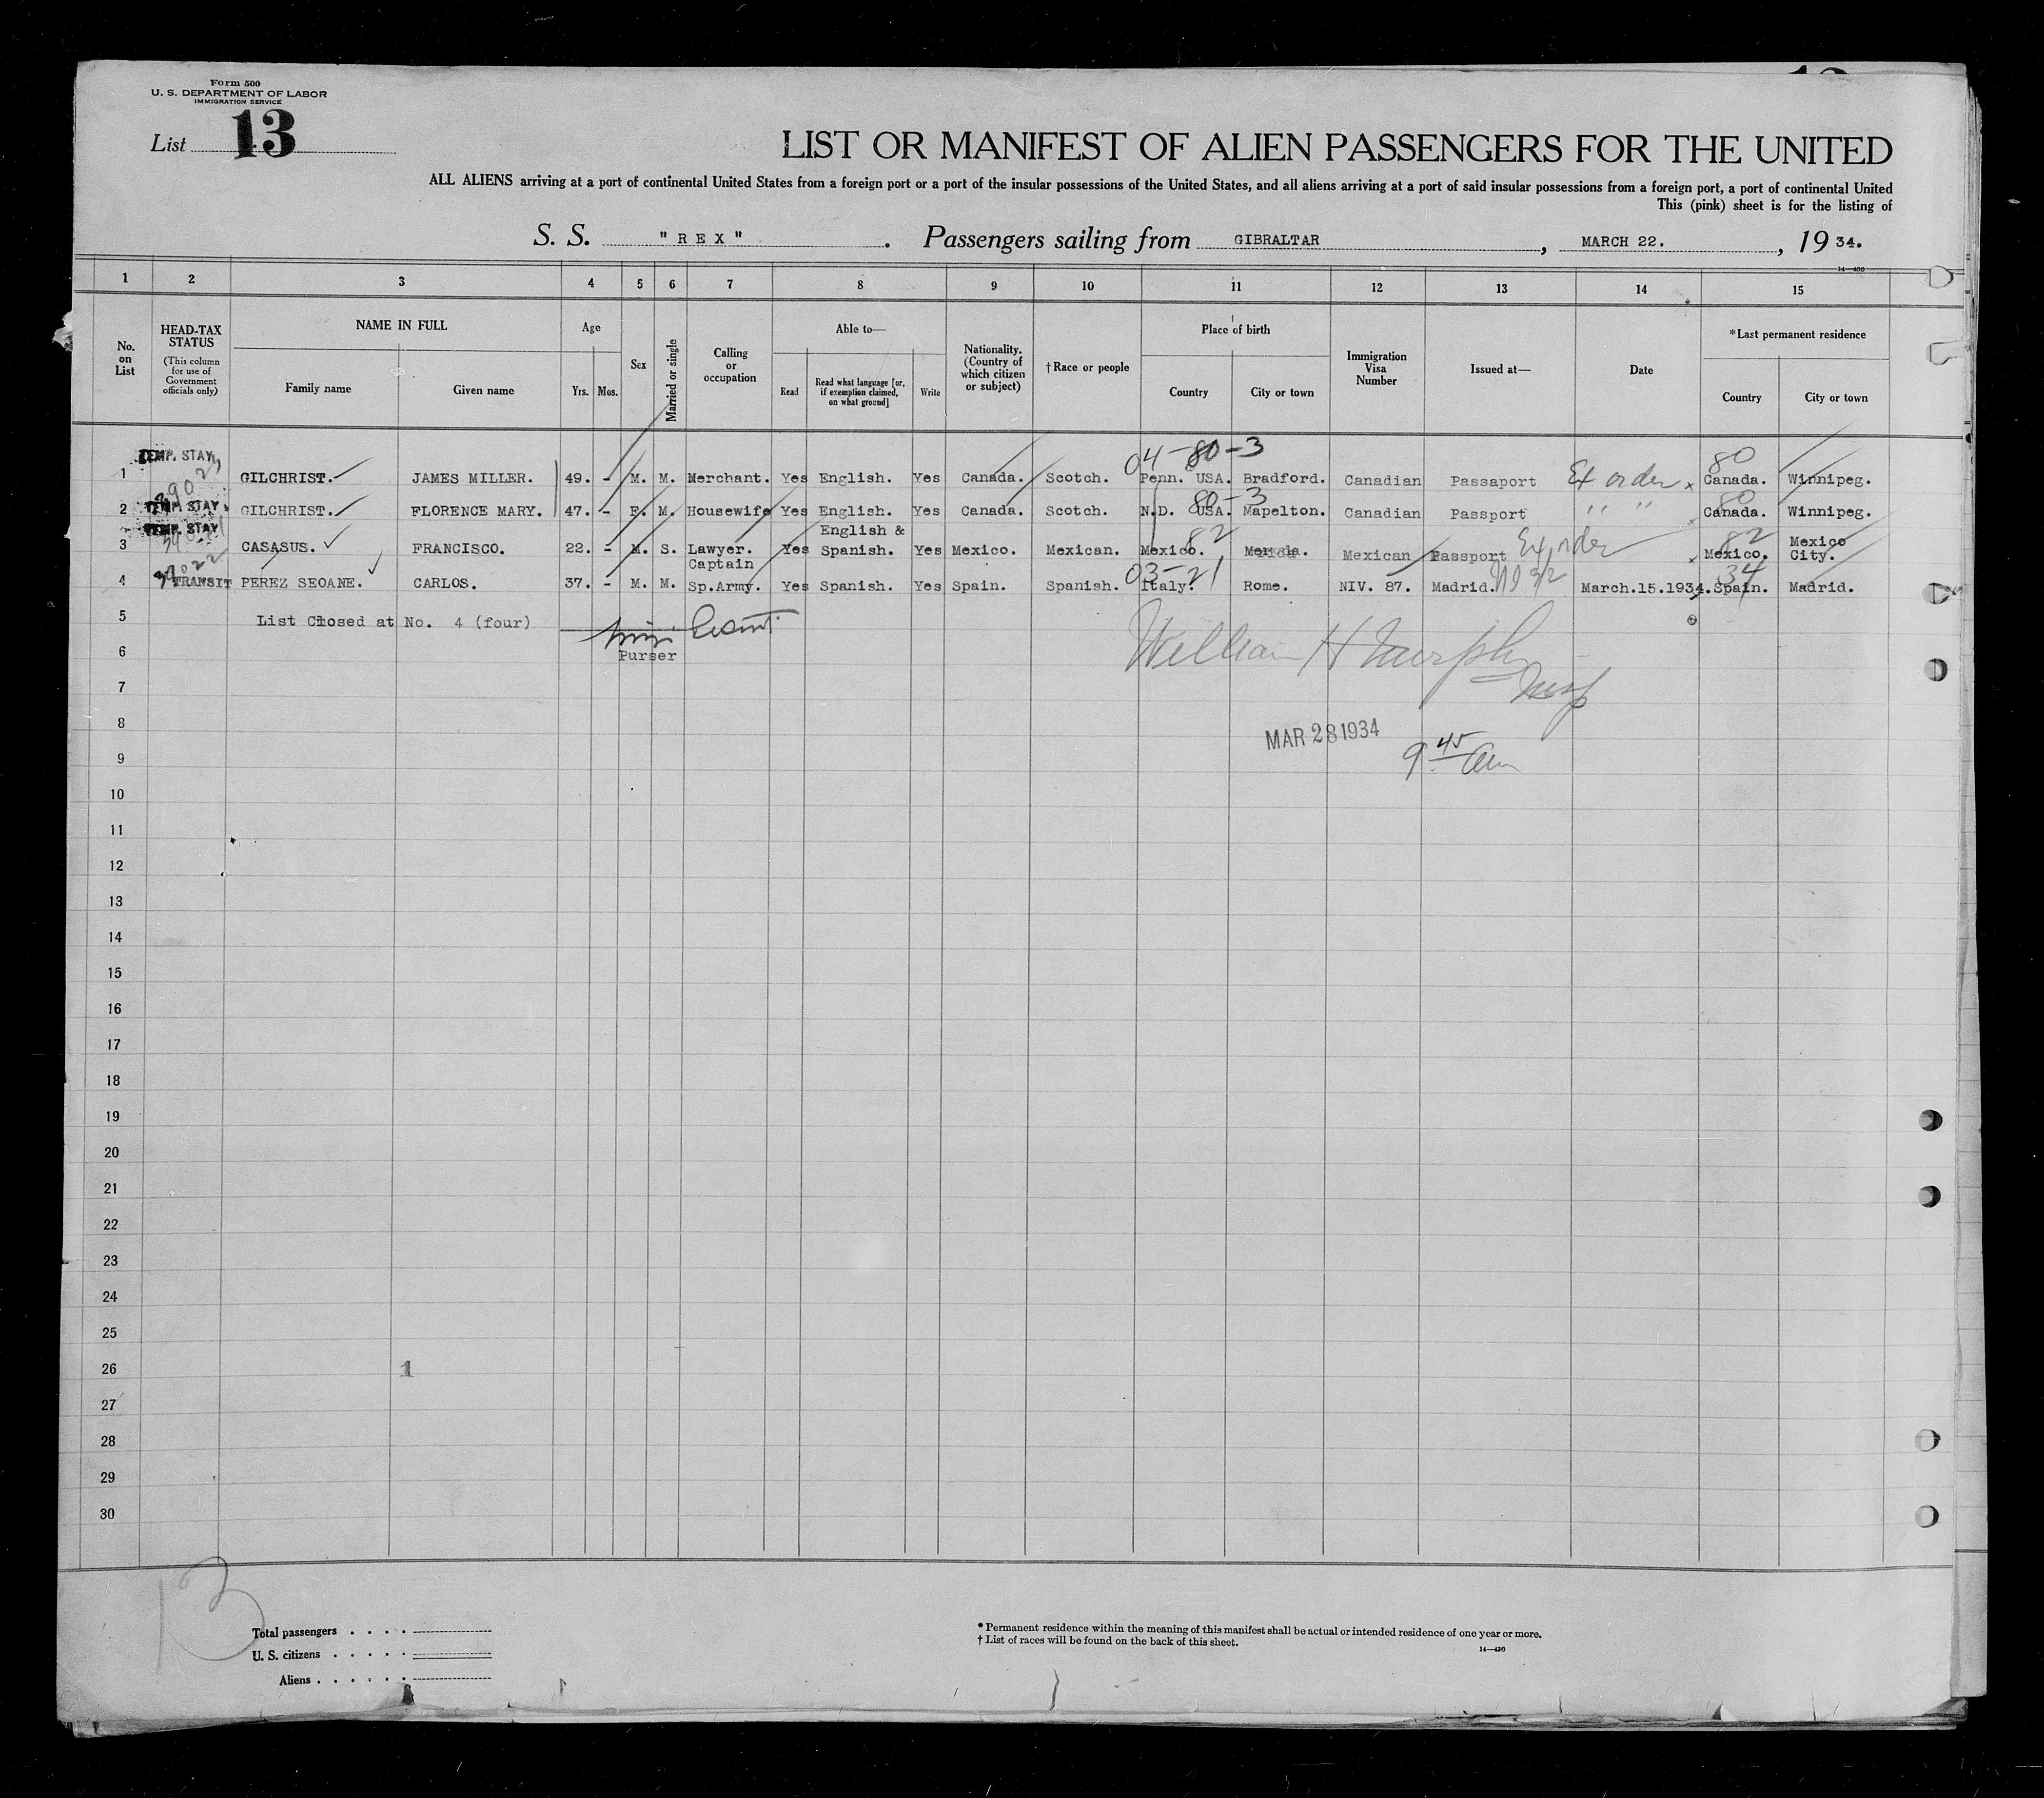 Form 500
U. S. DEPARTMENT OF LABOR
IMMIGRATION SERVICE
List 13
LIST OR MANIFEST OF ALIEN PASSENGERS FOR THE UNITED
ALL ALIENS arriving at a port of continental United States from a foreign port or a port of the insular possessions of the United States, and all aliens arriving at a port of said insular possessions from a foreign port, a port of continental United
This (pink) sheet is for the listing of
S. S. "REX". Passengers sailing from GIBRALTAR, MARCH 22., 19 34.
14—430
1 2 3 4 5 6 7 8 9 10 11 12 13 14 15
No. on List
HEAD-TAX STATUS
(This column for use of Government officials only)
NAME IN FULL
Family name
Given name
Age
Yrs.
Mos.
Sex
Married or single
Calling or occupation
Able to—
Read
Read what language [or, if exemption claimed, on what ground]
Write
Nationality. (Country of which citizen or subject)
†Race or people
Place of birth
Country
City or town
Immigration Visa Number
Issued at—
Date
*Last permanent residence
Country
City or town
04-80-3 80
1 TEMP. STAY GILCHRIST. JAMES MILLER. 49. - M. M. Merchant. Yes English. Yes Canada. Scotch. Penn. USA. Bradford. Canadian Passaport Ex order Canada. Winnipeg.
80-3 80
2 TEMP. STAY GILCHRIST. FLORENCE MARY. 47. - F. M. Housewife Yes English. Yes Canada. Scotch. N.D. USA. Mapelton. Canadian Passport " " Canada. Winnipeg.
82 82
3 TEMP. STAY CASASUS. FRANCISCO. 22. - M. S. Lawyer. Yes English & Spanish. Yes Mexico. Mexican. Mexico. Merida. Mexican Passport Ex order Mexico. Mexico City.
03-21 34
4 39022 TRANSIT PEREZ SEOANE. CARLOS. 37. - M. M. Captain Sp.Army. Yes Spanish. Yes Spain. Spanish. Italy. Rome. NIV. 87. Madrid. March.15.1934. Spain. Madrid.
5 List Closed at No. 4 (four)
William H Murphy
6 Purser
Insp
7
8
MAR 28 1934
9 9 45 am
10
11
12
13
14
15
16
17
18
19
20
21
22
23
24
25
26 1
27
28
29
30
13
Total passengers . . . .
U. S. citizens . . . . .
Aliens . . . . . .
* Permanent residence within the meaning of this manifest shall be actual or intended residence of one year or more.
† List of races will be found on the back of this sheet.
14—430